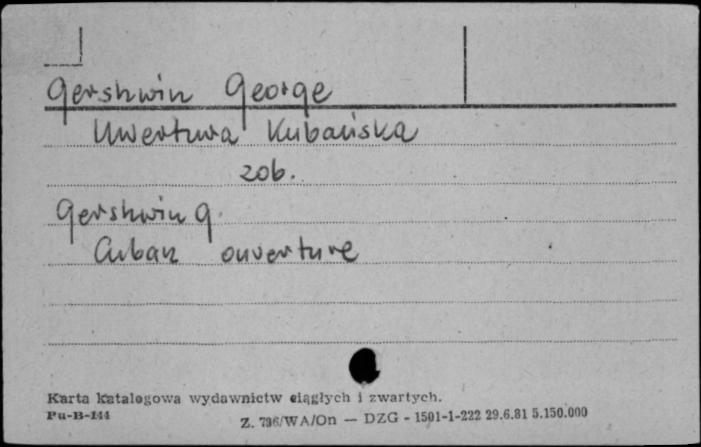 Gershwin George
Uwertura Kubańska
zob.
Gershwin G.
Cuban ouverture
Karta katalogowa wydawnictw ciągłych i zwartych.
Pu-B-144
Z. 796/WA/On — DZG - 1501-1-222 29.6.81 5.150.000